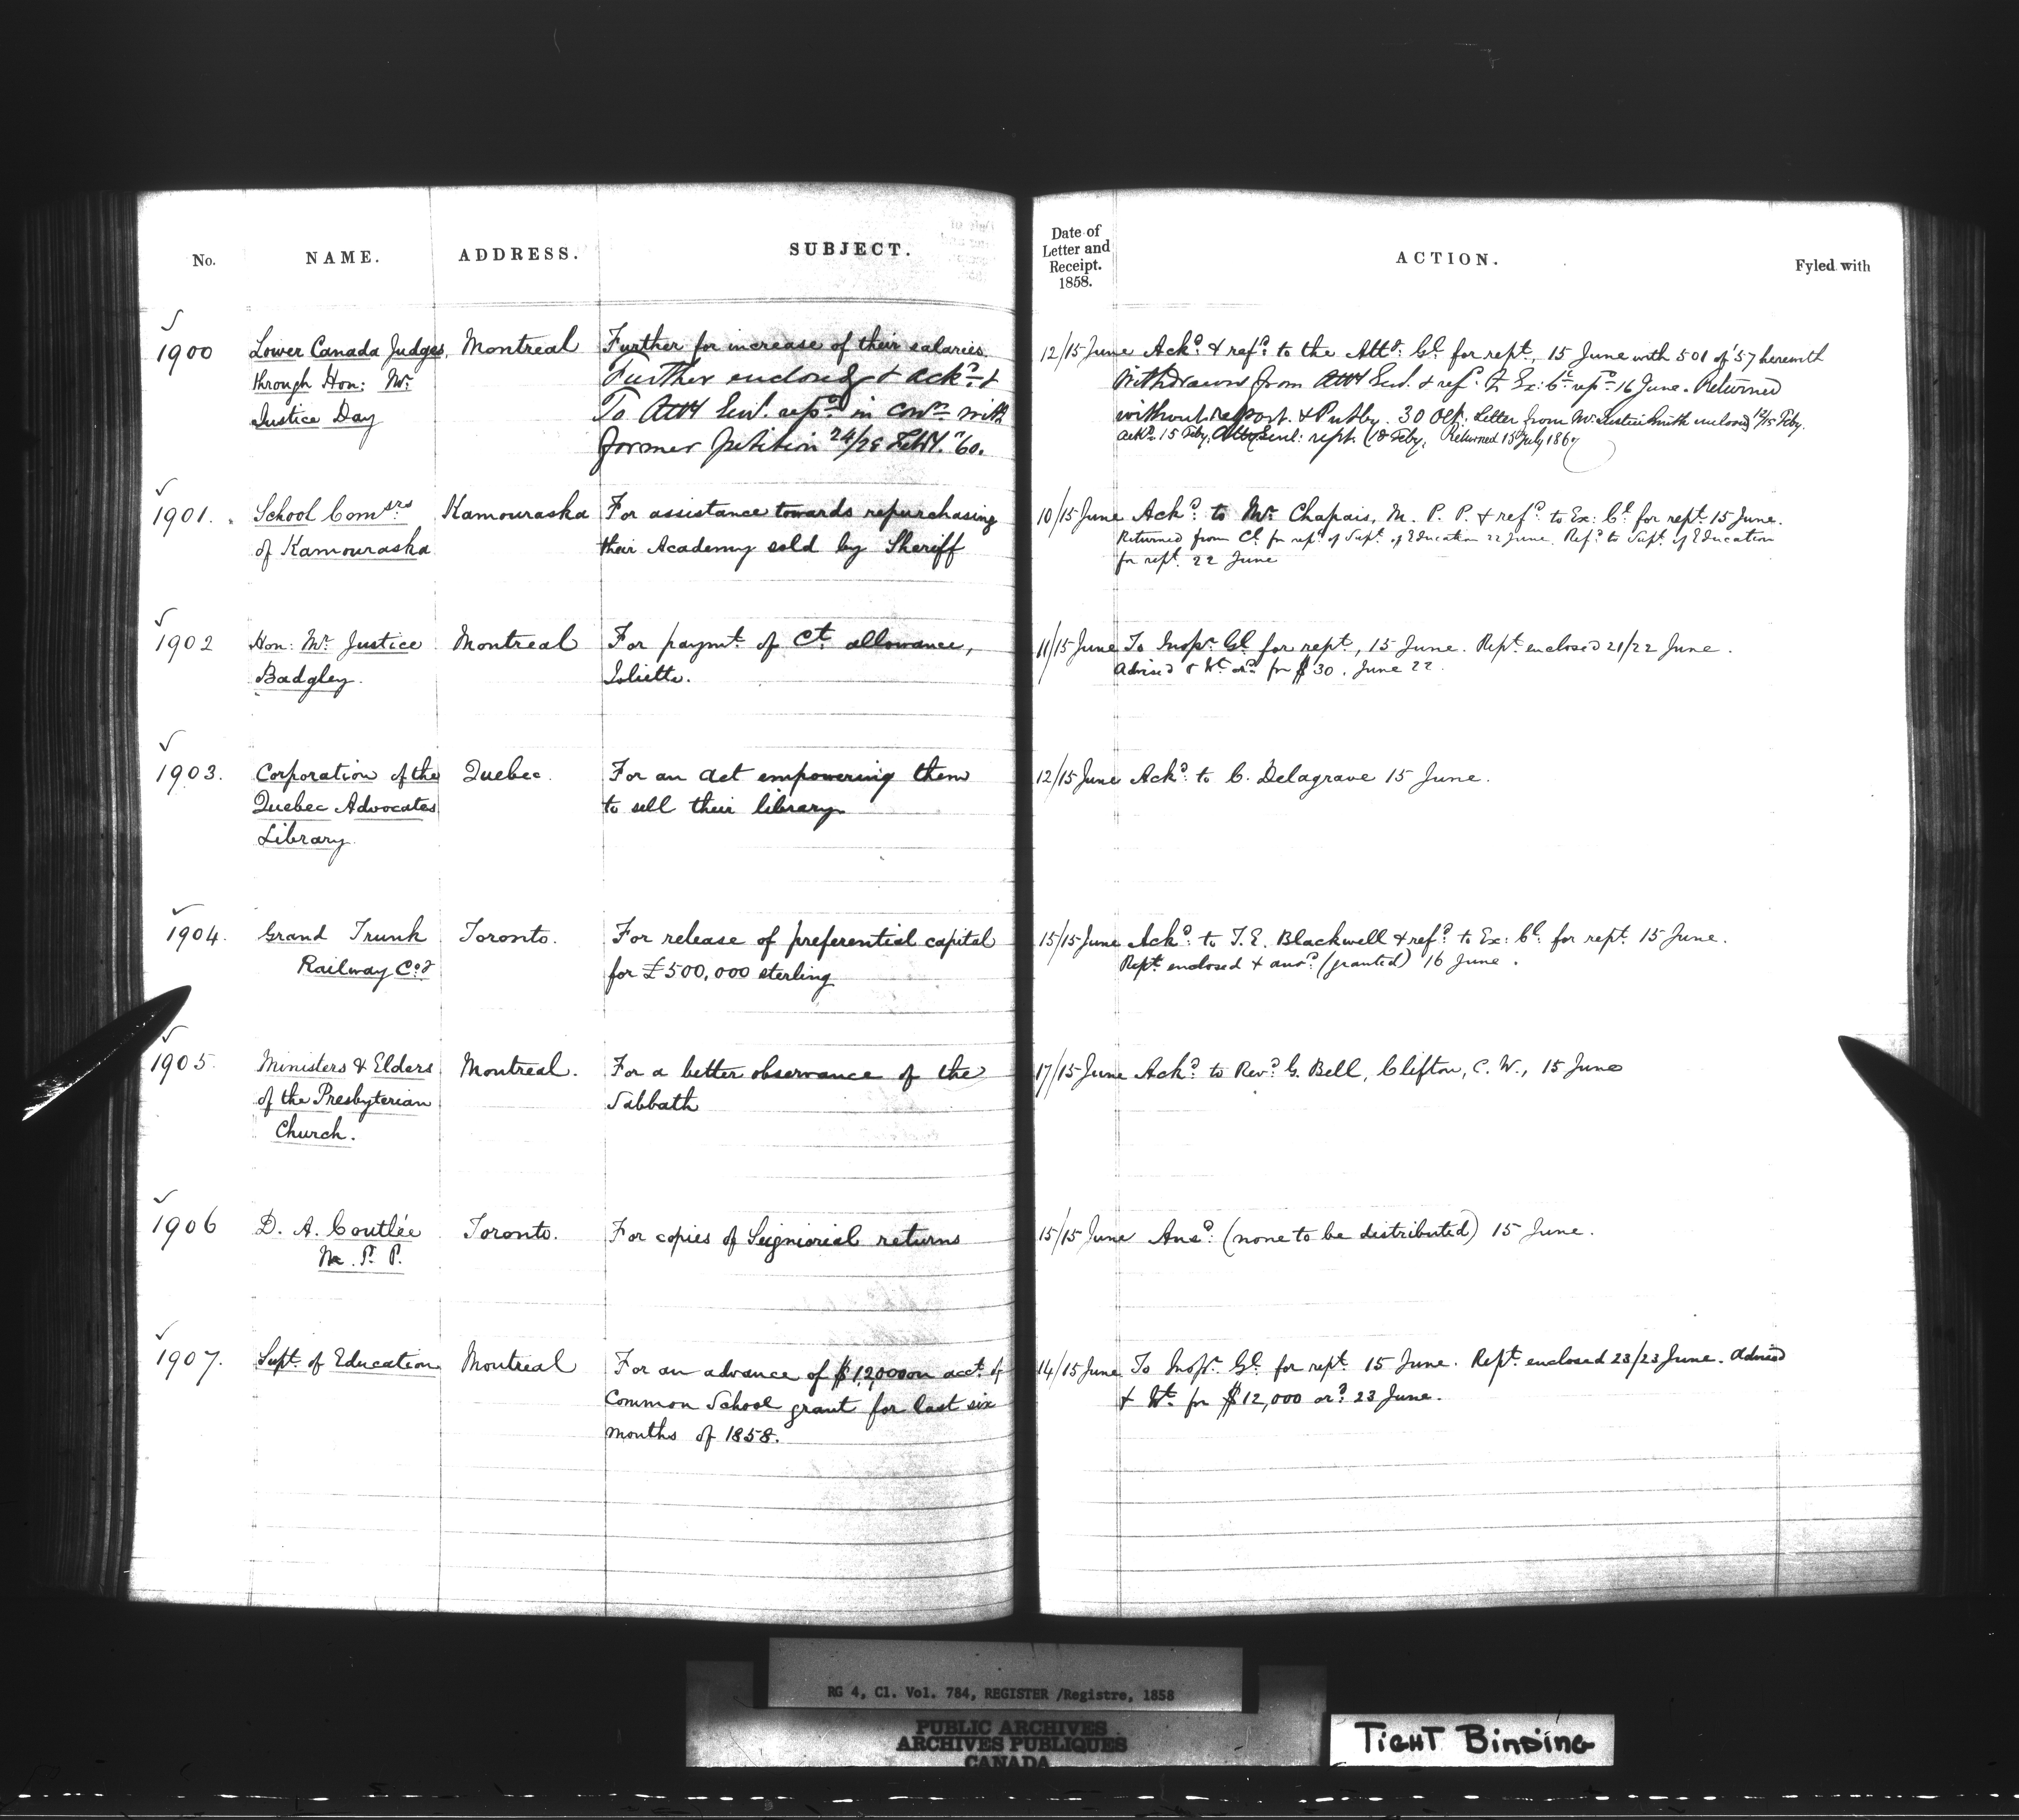 No. NAME. ADDRESS. SUBJECT.
Date of
Letter and
Receipt.
1858.
ACTION. Fyled with
1900 Lower Canada Judges, Montreal Further for increase of their salaries
through Hon: Mr. Further enclosed & ackd. &
Justice Day To Atty Genl. in with
former petition 24/28 Feby. '60.
12/15 June Ackd. & refd. to the Atty. Gl. for rept., 15 June with 501 of '57 herewith
Withdrawn from Atty Genl. & refd. to Ex: Cl. 16 June. Returned
without report. 30 Letter from Mr. Justice Smith enclosed 12/15 Feby.
Ackd. 15 Feby. Atty Genl: rept. 18 Feby. Returned 15 July 186
1901. School Comsrs Kamouraska For assistance towards repurchasing
of Kamouraska their Academy sold by Sheriff
10/15 June Ackd. to Mr. Chapais, M. P. P. & refd. to Ex: Cl. for rept. 15 June.
Returned from Cl. for rept. of Supt. of Education 22 June. Refd. to Supt. of Education
for rept. 22 June
1902 Hon: Mr. Justice Montreal For paymt. of Ct. allowance,
Badgley. Joliette.
11/15 June To Inspr. Gl. for rept., 15 June. Rept. enclosed 21/22 June.
Advised & Wt. ord. for $30. June 22.
1903. Corporation of the Quebec. For an act empowering them
Quebec Advocates to sell their library
Library.
12/15 June Ackd. to C. Delagrave 15 June.
1904. Grand Trunk Toronto. For release of preferential capital
Railway Coy for £500,000 sterling
15/15 June Ackd. to T. E. Blackwell & refd. to Ex: Cl. for rept. 15 June.
Rept. enclosed & ansd. (granted) 16 June.
1905. Ministers & Elders Montreal. For a better observance of the
of the Presbyterian Sabbath
Church.
17/15 June Ackd. to Revd. G. Bell, Clifton, C. W., 15 June
1906 D. A. Coutlée Toronto. For copies of Seigniorial returns
M. P. P.
15/15 June Ansd. (none to be distributed) 15 June.
1907. Supt. of Education Montreal For an advance of $12,000 on acct. of
Common School grant for last six
months of 1858.
14/15 June To Inspr. Gl. for rept. 15 June. Rept. enclosed 23/23 June. Advised
& Wt. for $12,000 ord. 23 June.
RG 4, Cl. Vol. 784, REGISTER /Registre, 1858
PUBLIC ARCHIVES
ARCHIVES PUBLIQUES
CANADA
TIGHT BINDING